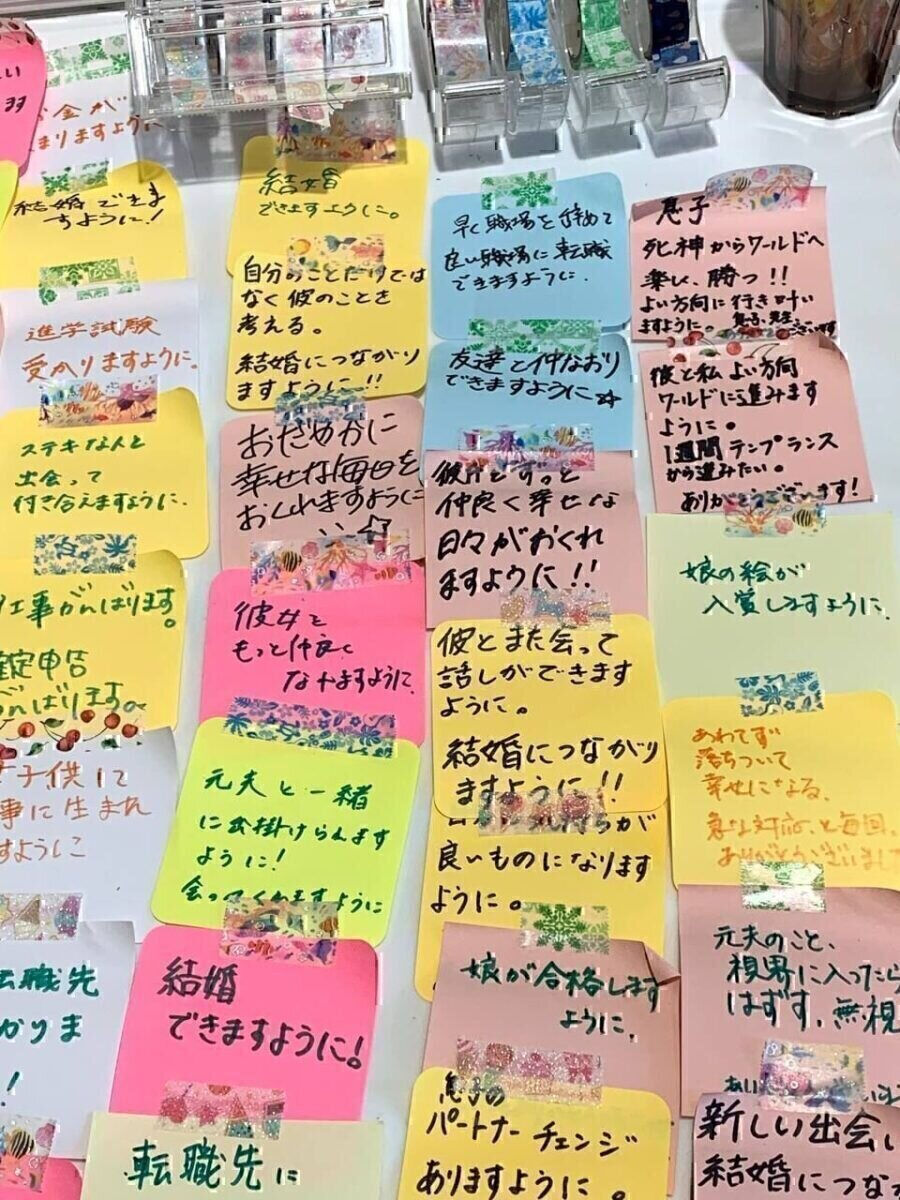 しい
る
お金が
まりますように
結婚できま
すように!
進学試験
受かりますように.
ステキなんと
出会って
付き合えますように.
仕事がんばります。
確定申告
がんばります。
子供に
事に生まれ
すように
転職先
かりま
!
結婚
できますように。
自分のことだけでは
なく彼のことを
考える。
結婚につながり
ますように!!
おだやかに
幸せな毎日を
おくれますように
彼女と
もっと仲良く
なれますように.
元夫と一緒
に出掛けられます
ように!
会ってくれますように
結婚
できますように!
転職先に
早く職場を辞めて
良い職場に転職
できますように.
友達と仲なおり
できますように☆
彼氏とずっと
仲良く幸せな
日々がおくれ
ますように!!
彼とまた会って
話しができます
ように。
結婚につながり
ますように!!
良いものになります
ように。
娘が合格します
ように.
息子の
パートナーチェンジ
ありますように。
息子
死神からワールドへ
楽しく、勝つ!!
よい方向に行き叶い
ますように。
彼と私よい方向
ワールドに進みます
ように。
1週間テンプランス
から進みたい。
ありがとうございます!
娘の絵が
入賞しますように.
あわてず
落ちついて
幸せになる.
急な対応、と毎回、
ありがとうございまし
元夫のこと、
視界に入ったら
はずす.無視
新しい出会い
結婚につな